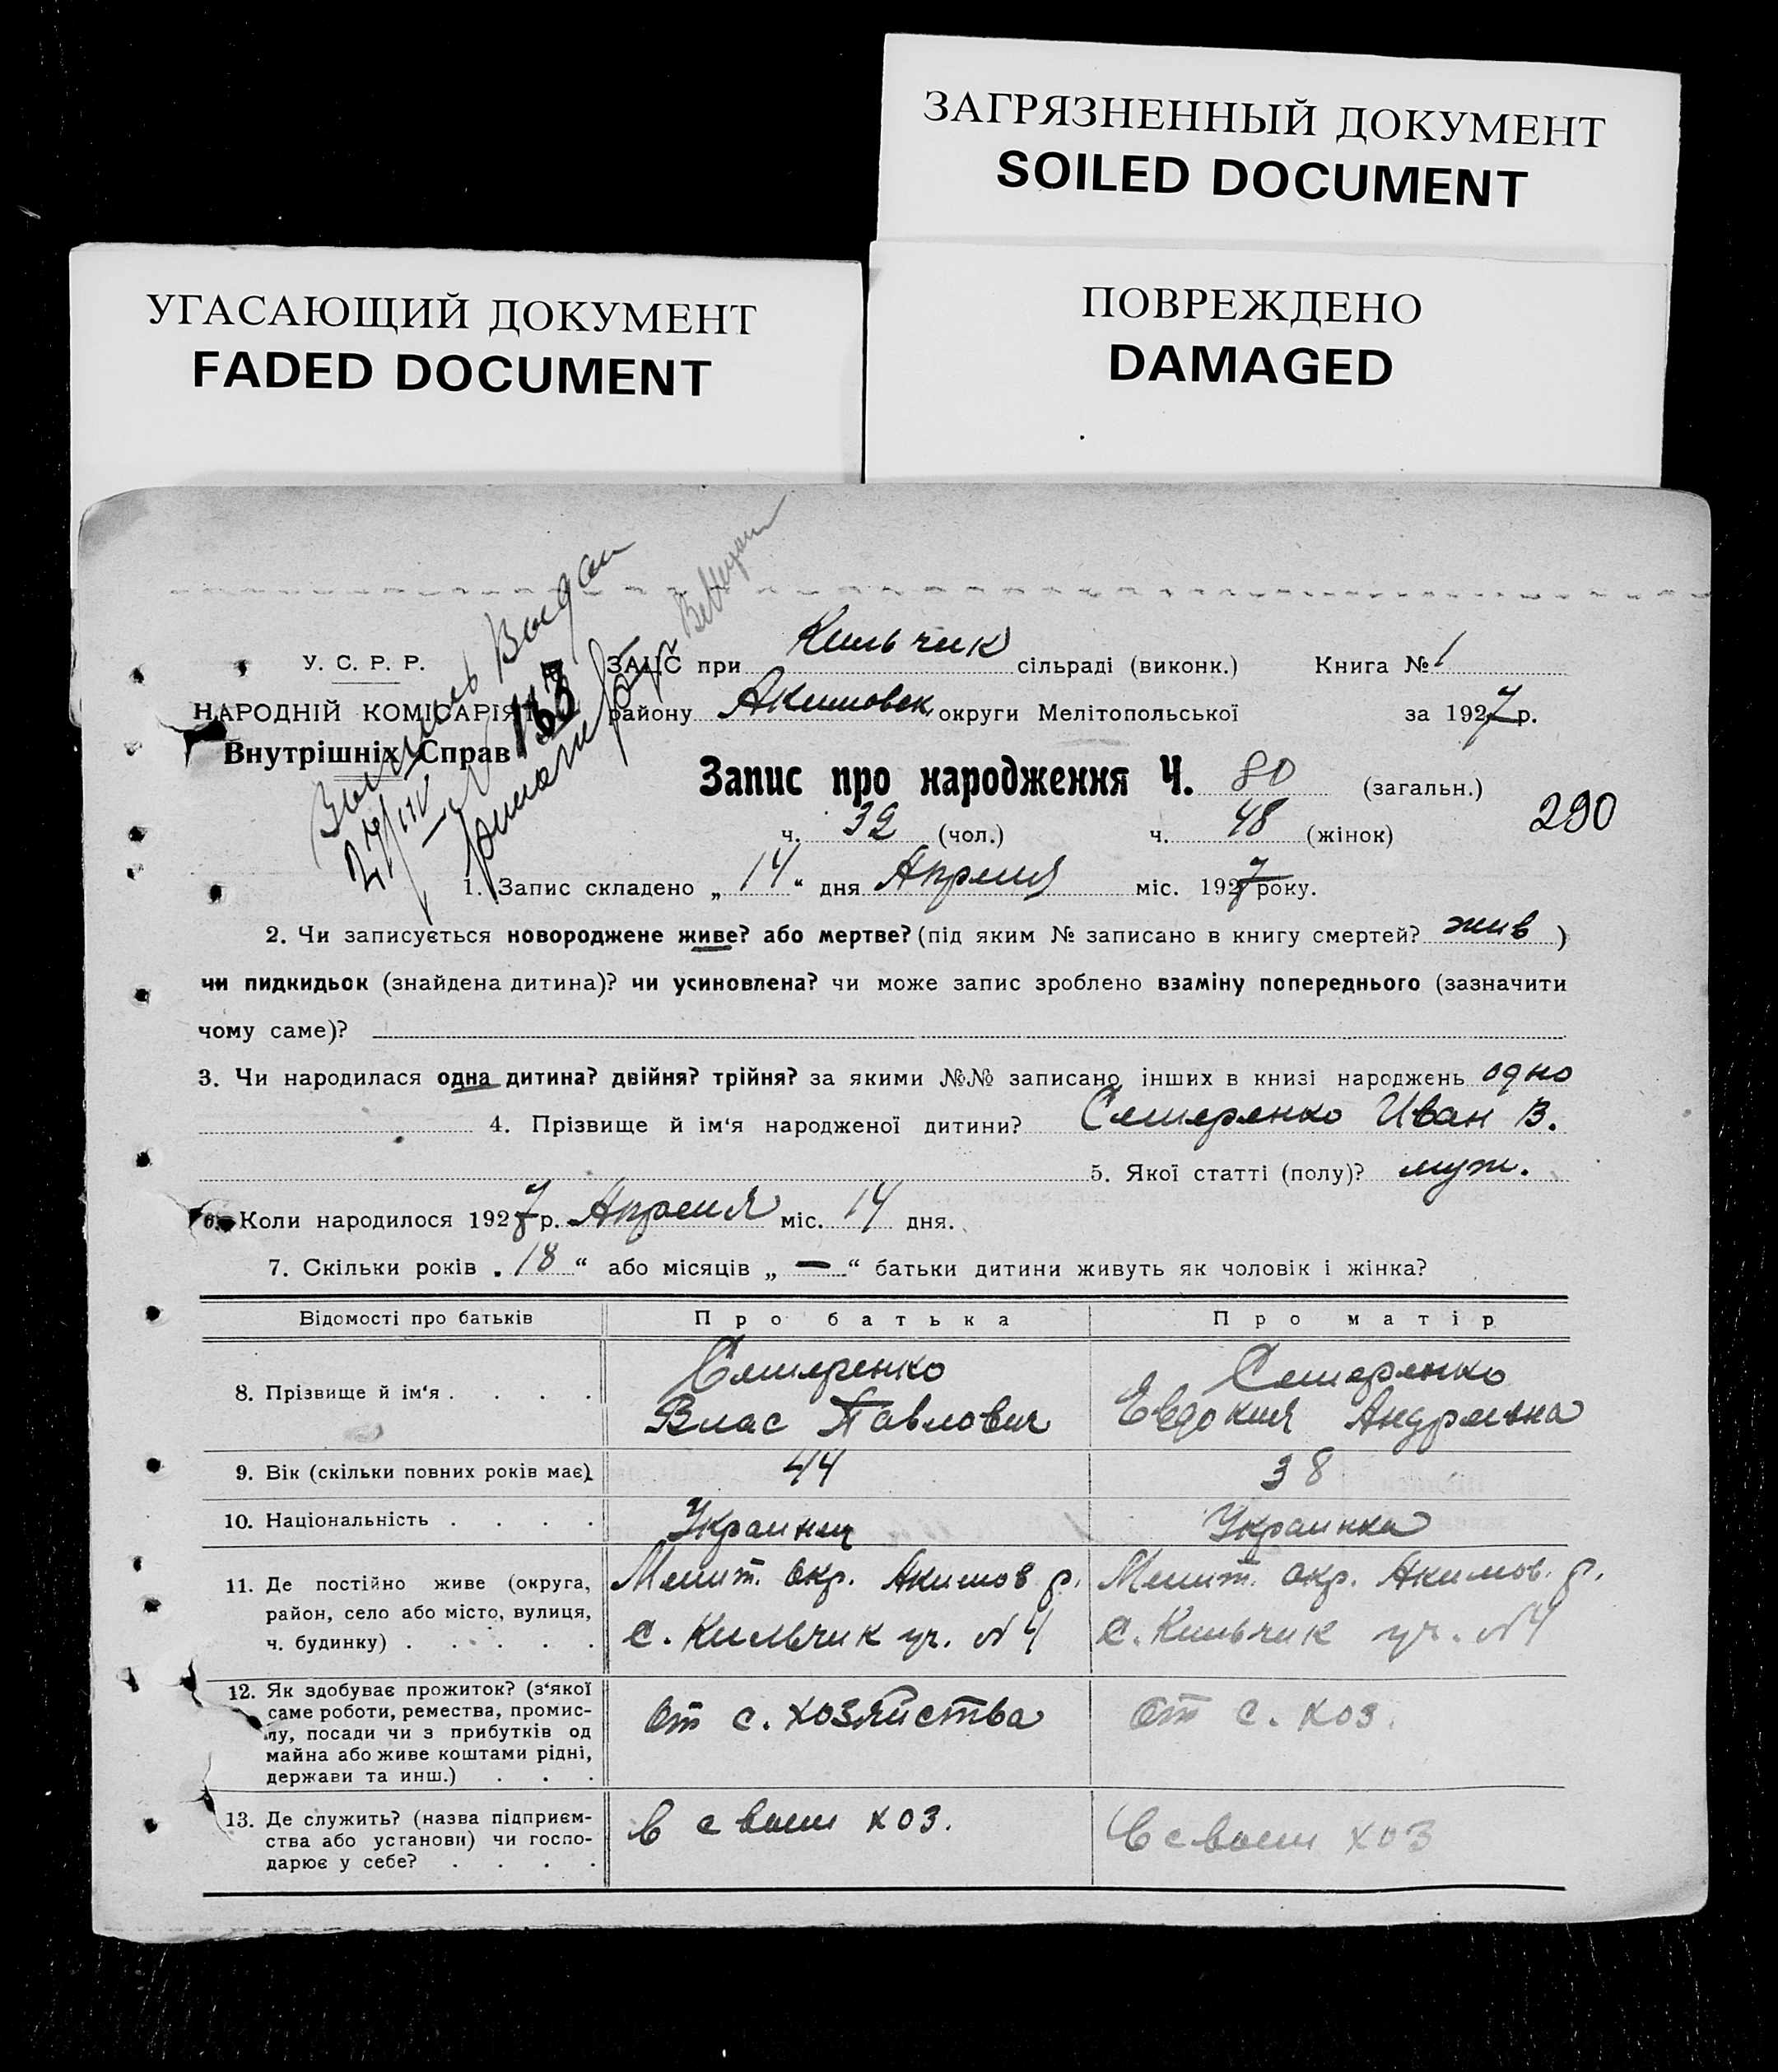 ЗАГРЯЗНЕННЫЙ ДОКУМЕНТ
SOILED DOCUMENT
УГАСАЮЩИЙ ДОКУМЕНТ
FADED DOCUMENT
ПОВРЕЖДЕНО
DAMAGED
У. С. Р. Р.
НАРОДНІЙ КОМІСАРІЯТ
Внутрішніх Справ
Выдан
133
ЗАЦС при Кильчик сільраді (виконк.) Книга № 1
району Акимовск. округи Мелітопольської за 1927 р.
Запис про народження Ч. 80 (загальн.)
290
ч. 32 (чол.) ч. 48 (жінок)
1. Запис складено „ 14 “ дня Апреля міс. 1927 року.
2. Чи записується новороджене живе? або мертве? (під яким № записано в книгу смертей? жив )
чи пидкидьок (знайдена дитина)? чи усиновлена? чи може запис зроблено взаміну попереднього (зазначити
чому саме)?
3. Чи народилася одна дитина? двійня? трійня? за якими №№ записано інших в книзі народжень одно
4. Прізвище й ім‘я народженої дитини? Семеренко Иван В.
5. Якої статті (полу)? муж.
6. Коли народилося 1927 р. Апреля міс. 14 дня.
7. Скільки років „ 18 “ або місяців „ — “ батьки дитини живуть як чоловік і жінка?
Відомості про батьків Про батька Про матір
8. Прізвище й ім‘я . . . . Семеренко Влас Павлович Семеренко Евдокия Андреевна
9. Вік (скільки повних років має) 44 38
10. Національність . . . . Украинец Украинка
11. Де постійно живе (округа, Мелит. окр. Акимов. р. Мелит. окр. Акимов. р.
район, село або місто, вулиця,
ч. будинку) . . . . . с. Кильчик уч. №4 с. Кильчик уч. №4
12. Як здобуває прожиток? (з‘якої
саме роботи, ремества, промис-
лу, посади чи з прибутків од От с. хозяйства От с. хоз.
майна або живе коштами рідні,
держави та инш.) . . .
13. Де служить? (назва підприєм- В своем хоз. В своем хоз
ства або установи) чи госпо-
дарює у себе? . . . .